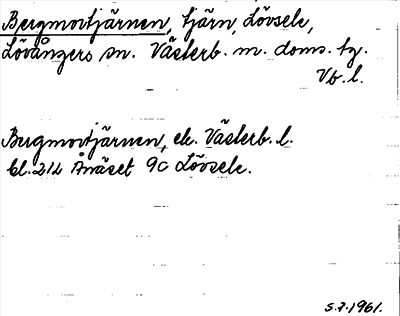 Bergmovtjärnen, tjärn, Lövsele,
Lövångers sn. Västerb. m. doms. tg.
Vb. l.
Bergmovtjärnen, ek. Västerb. l.
bl. 212 Ånäset 9c Lövsele.
5.7.1961.